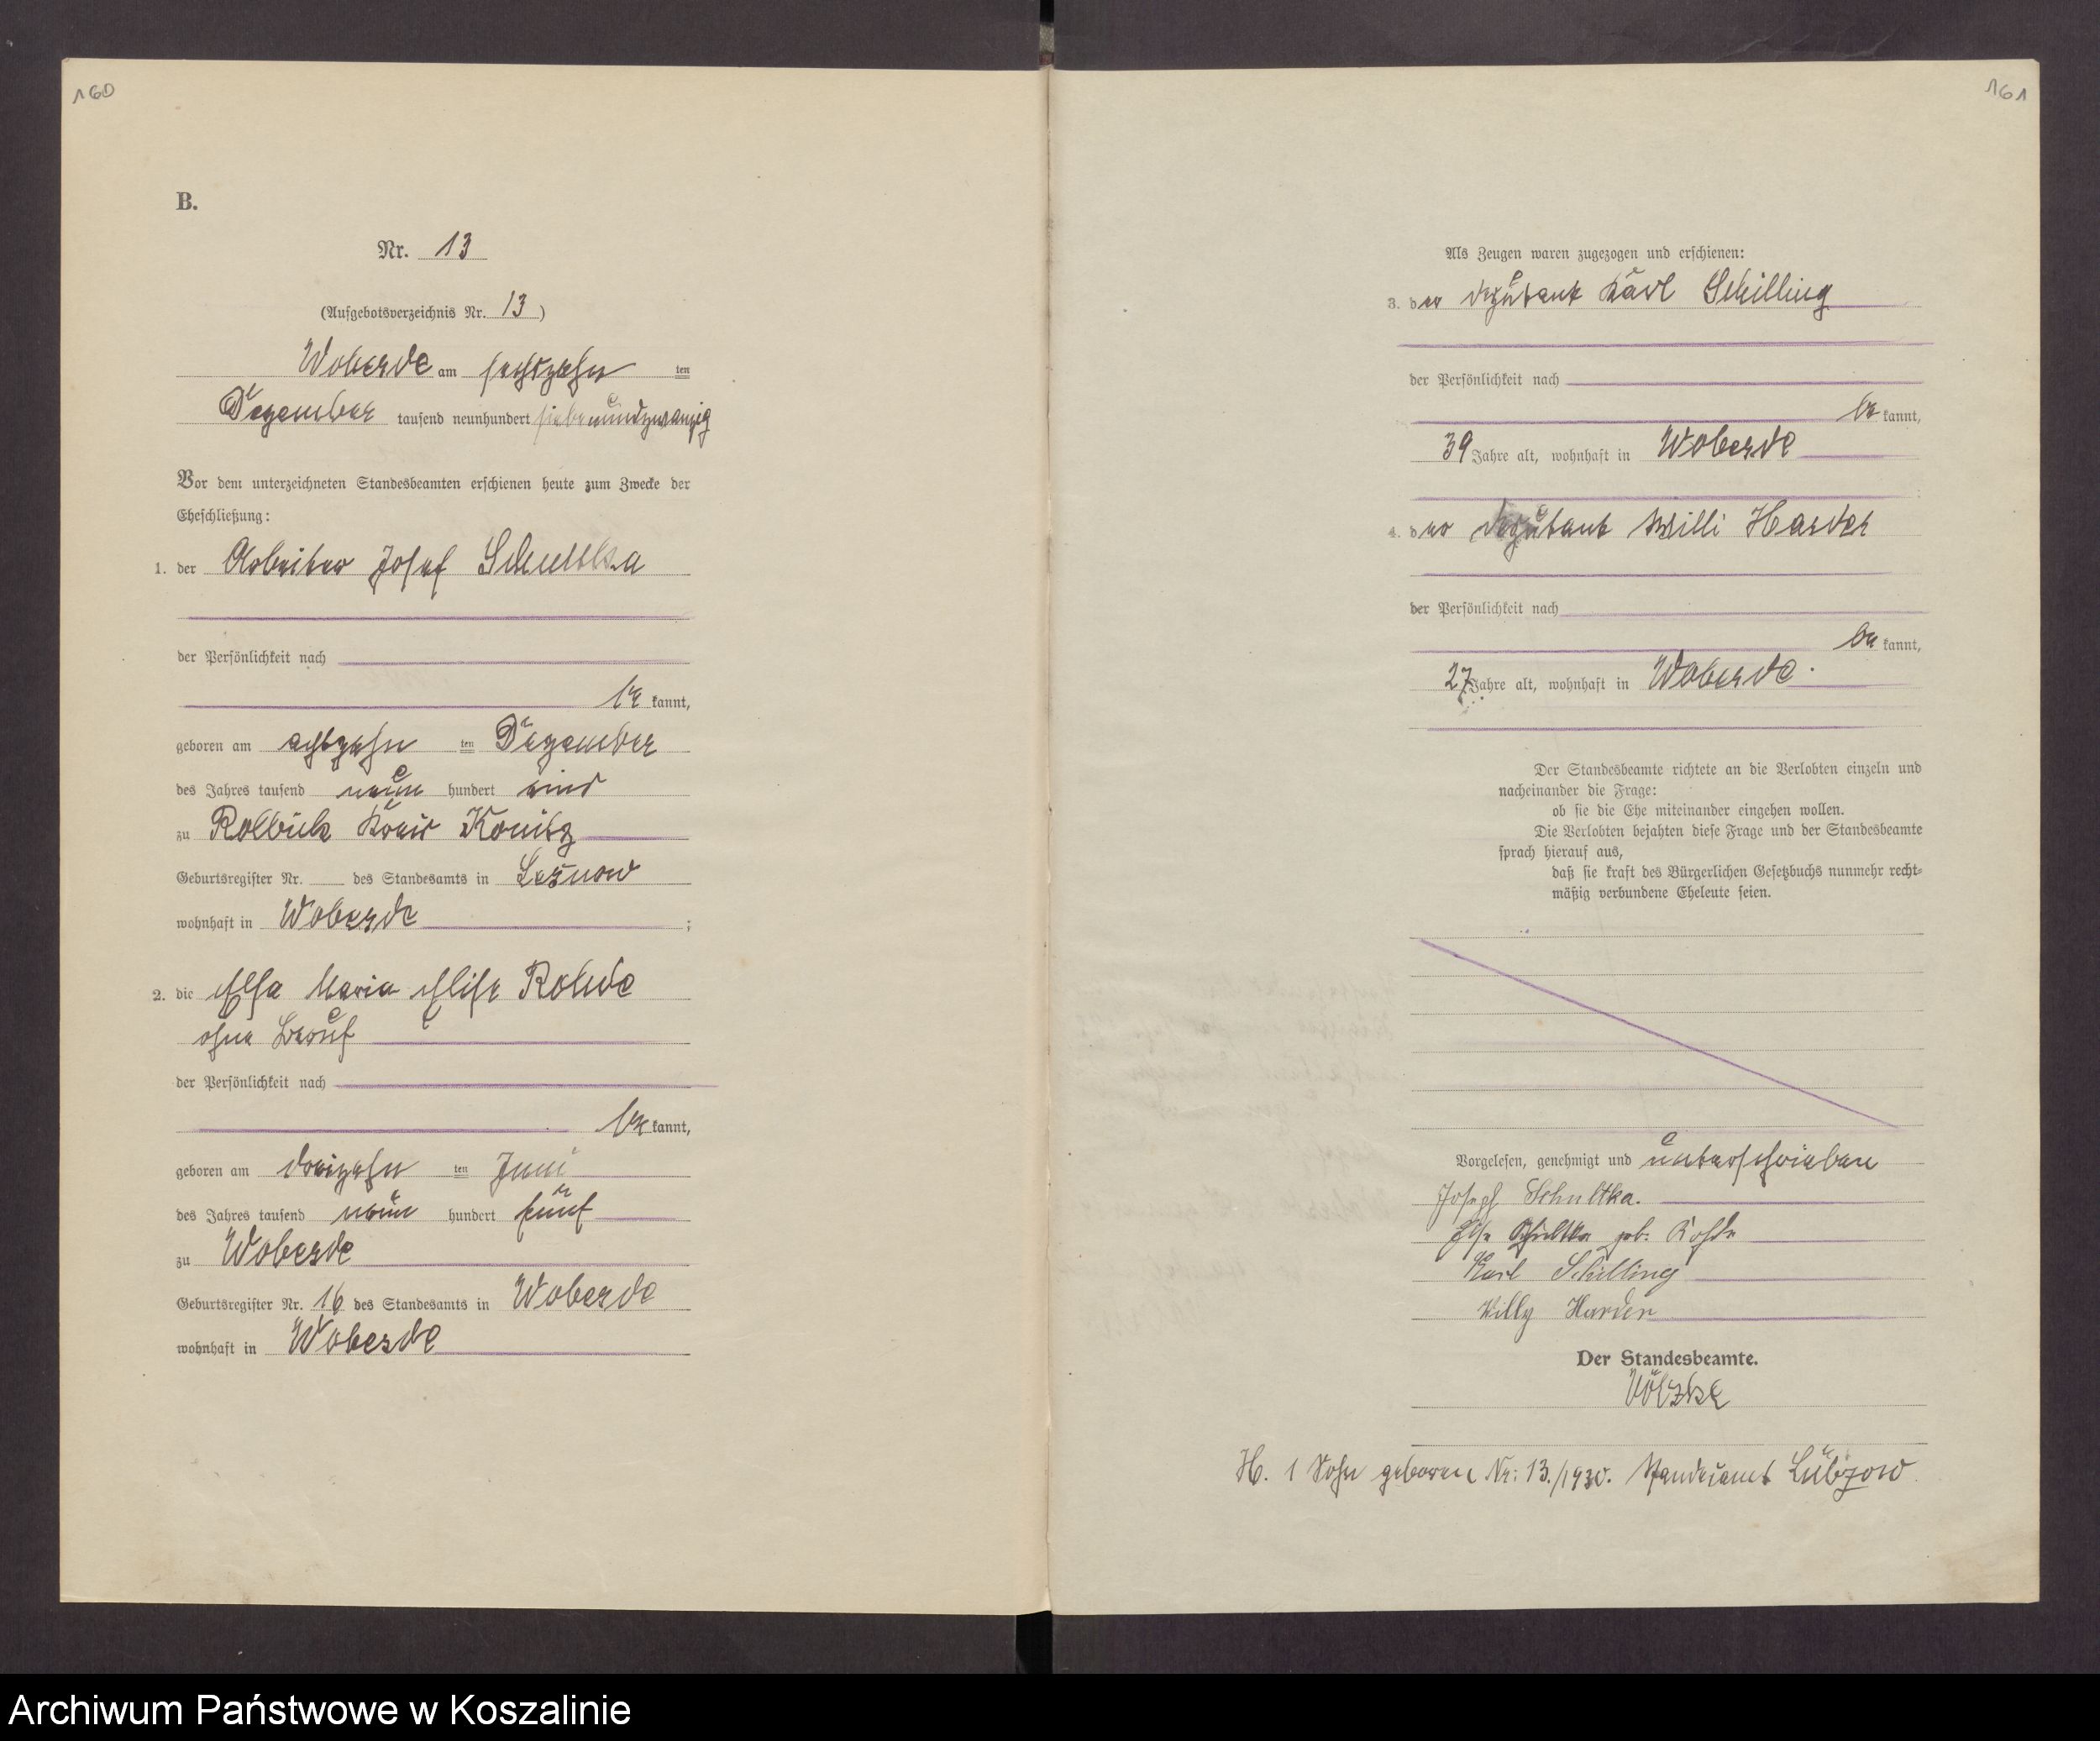 160
B.
Nr. 13
(Aufgebotsverzeichnis Nr. 13)
Woberde am sechszehn ten
Dezember tausend neunhundert siebenundzwanzig
Vor dem unterzeichneten Standesbeamten erschienen heute zum Zwecke der
Eheschließung:
1. der Arbeiter Josef Schultka
der Persönlichkeit nach
be kannt,
geboren am achtzehn ten Dezember
des Jahres tausend neun hundert eins
zu Rolbick Kreis Konitz
Geburtsregister Nr. des Standesamts in Lesnow
wohnhaft in Woberde ;
2. die Elsa Maria Elise Rohde
ohne Beruf
der Persönlichkeit nach
be kannt,
geboren am dreizehn ten Juni
des Jahres tausend neun hundert fünf
zu Woberde
Geburtsregister Nr. 16 des Standesamts in Woberde
wohnhaft in Woberde
161
Als Zeugen waren zugezogen und erschienen:
3. der Deputant Karl Schilling
der Persönlichkeit nach
be kannt,
39 Jahre alt, wohnhaft in Woberde
4. der Deputant Willi Harder
der Persönlichkeit nach
be kannt,
27 Jahre alt, wohnhaft in Woberde.
Der Standesbeamte richtete an die Verlobten einzeln und
nacheinander die Frage:
ob sie die Ehe miteinander eingehen wollen.
Die Verlobten bejahten diese Frage und der Standesbeamte
sprach hierauf aus,
daß sie kraft des Bürgerlichen Gesetzbuchs nunmehr recht-
mäßig verbundene Eheleute seien.
Vorgelesen, genehmigt und unterschrieben
Joseph Schultka.
Else Schultka geb. Rohde
Karl Schilling
Willy Harder
Der Standesbeamte.
Völzke
H. 1 Sohn geboren Nr: 13./1930. Standesamt Lübzow.
Archiwum Państwowe w Koszalinie